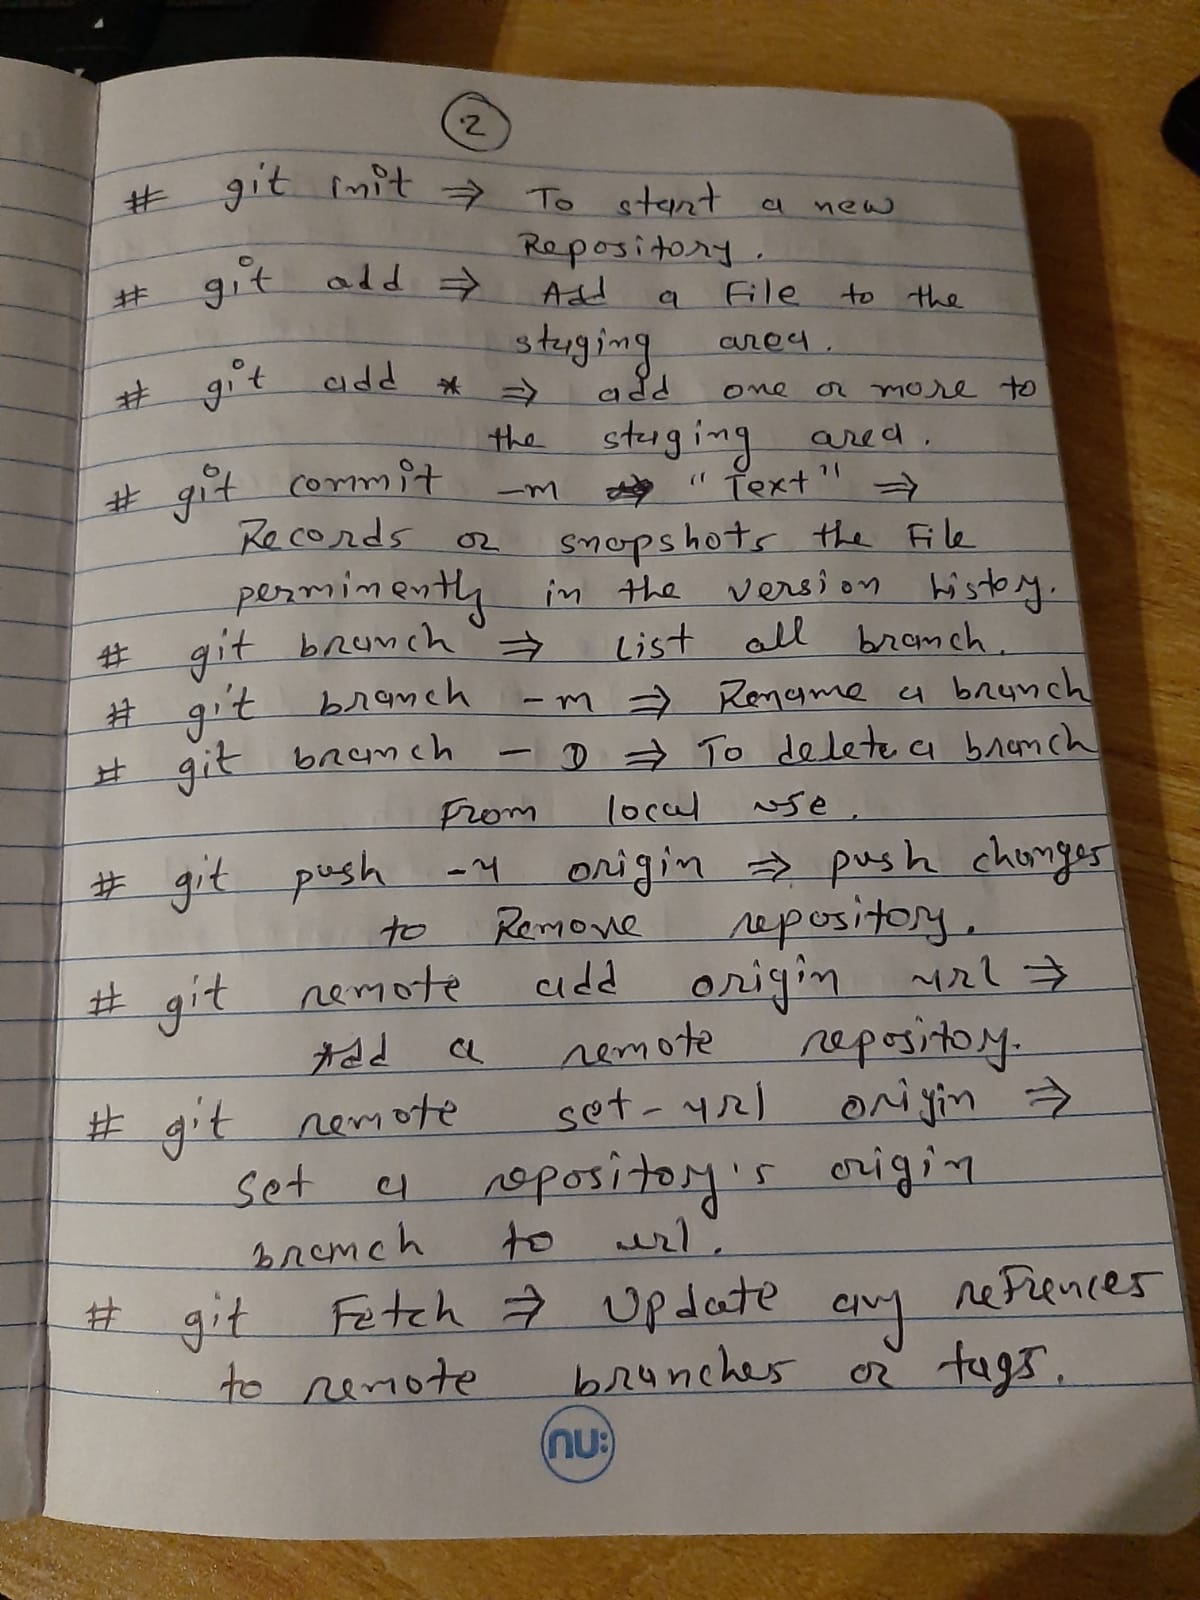 2
# git init ⇒ To start a new
Repository.
# git add ⇒ Add a File to the
staging area.
# git add * ⇒ add one or more to
the staging area.
# git commit -m "Text" ⇒
Records or snapshots the File
perminently in the version history.
# git branch ⇒ List all branch.
# git branch -m ⇒ Rename a branch
# git branch - D ⇒ To delete a branch
From local use.
# git push -u origin ⇒ push changes
to Remove repository.
# git remote add origin url ⇒
Add a remote repository.
# git remote set-url origin ⇒
Set a repository's origin
branch to url.
# git Fetch ⇒ Update any refrences
to remote branches or tags.
nu: